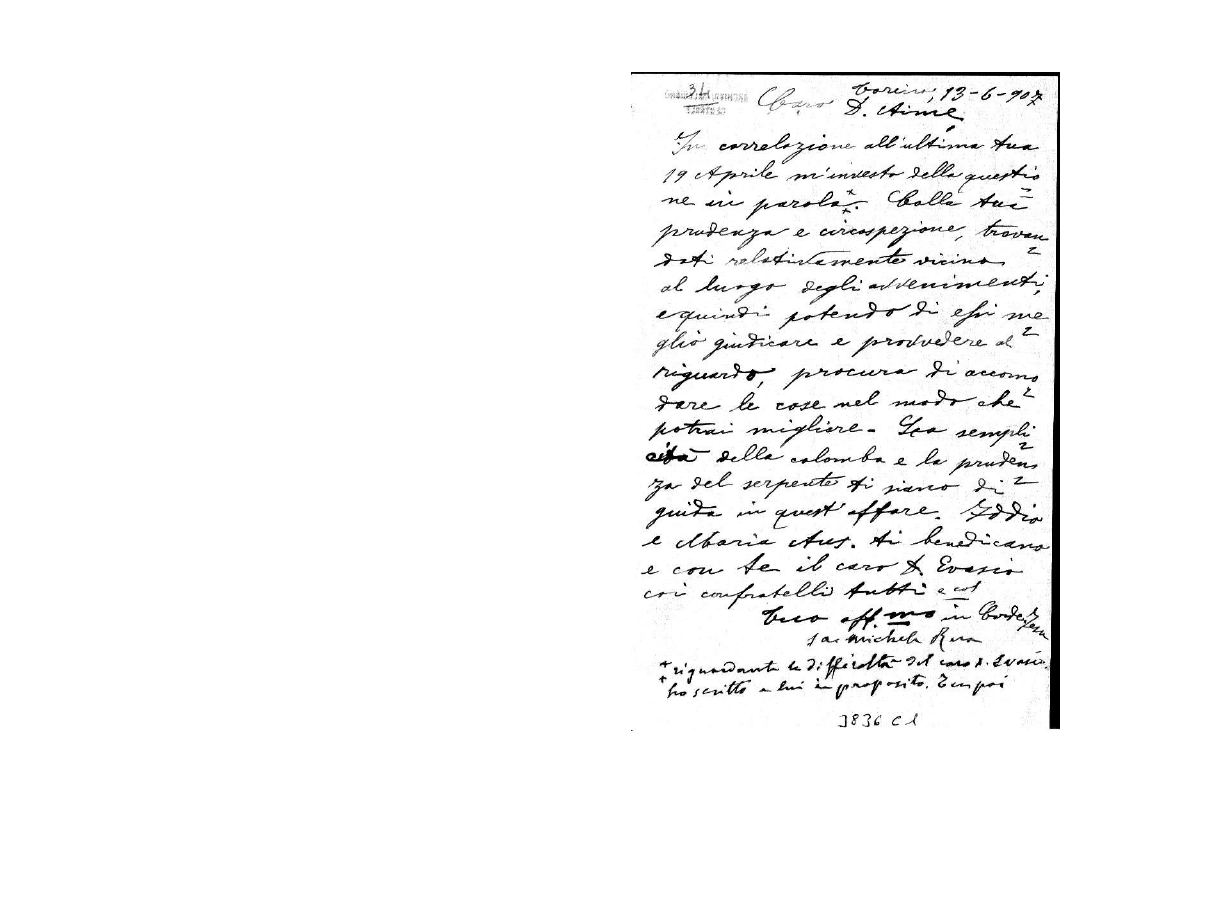 31
Torino, 13-6-907
Caro D. Aimé
In correlazione all'ultima tua
19 Aprile m'investo della questio
ne in parola ++. Colla tua
prudenza e circospezione, trovan
doti relativamente vicino
al luogo degli avvenimenti,
e quindi potendo di essi me
glio giudicare e provvedere al
riguardo, procura di accomo
dare le cose nel modo che
potrai migliore - La sempli
cità della colomba e la pruden
za del serpente ti siano di
guida in quest'affare. Iddio
e Maria Aus. ti benedicano
e con te il caro D. Evasio
coi confratelli tutti e col
Tuo aff.mo in Corde Jesu
Sac Michele Rua
++ riguardante le difficoltà del caro D. Evasio.
ho scritto a lui in proposito. Tu poi
3836 C 1